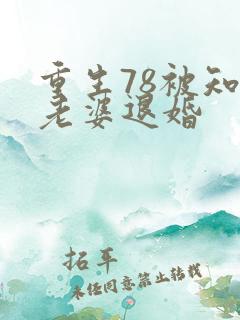 重生78被知
老婆退婚
拓平
未经同意禁止转载